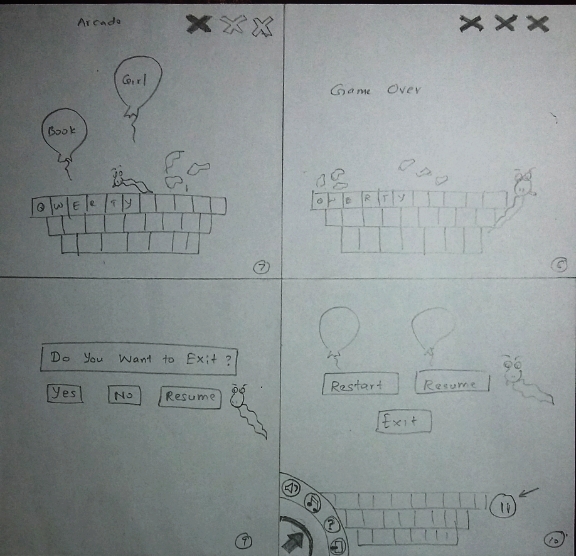 Arcade
Girl
Book
Q W E R T Y
7
Game Over
Q W E R T Y
8
Do You Want to Exit ?
Yes No Resume
9
Restart Resume
Exit
?
10